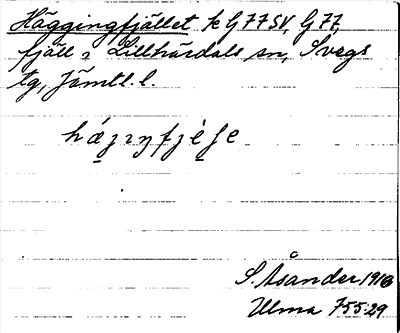 Häggingfjället k G77SV, G77,
fjäll i Lillhärdals sn, Svegs
tg, Jämtl. l.
hǽʒɪŋfjèʃe
S. Åsander 1916
Ulma 755:29